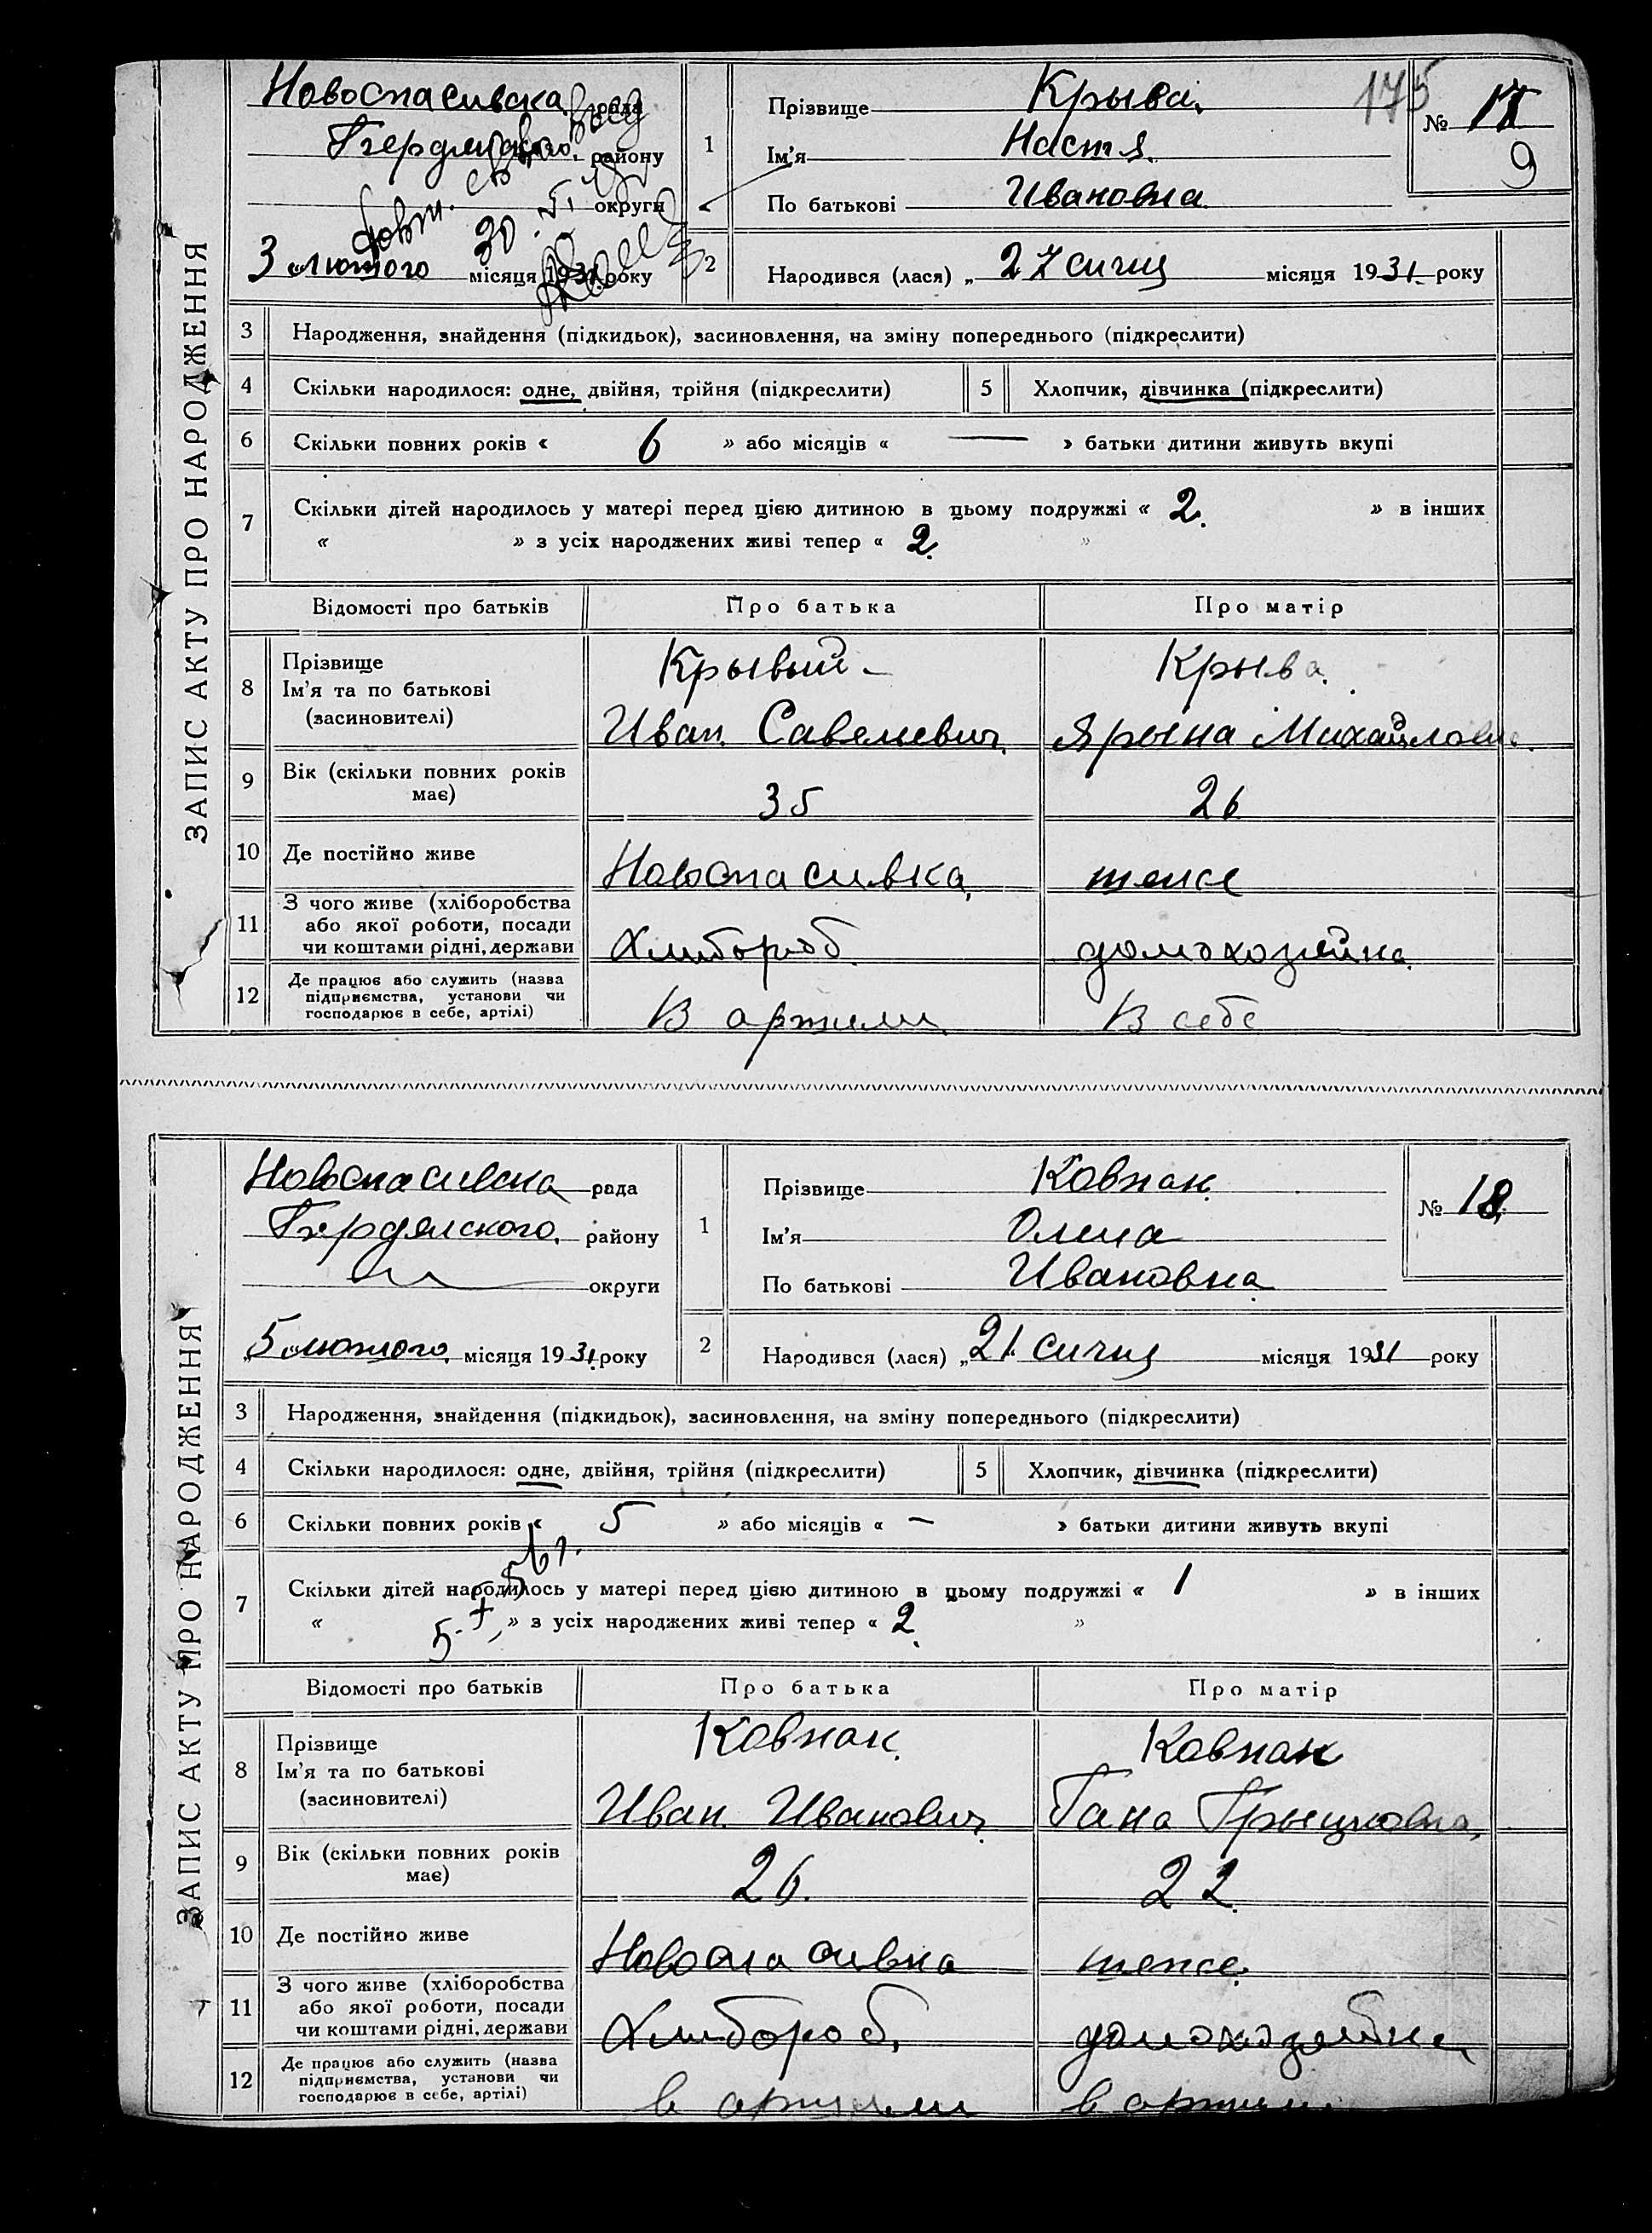 ЗАПИС АКТУ ПРО НАРОДЖЕННЯ
Новоспасивска рада
Бердянского району
округи
3 лютого місяця 1931 року
30
1
Прізвище Крыва
Ім'я Настя
По батькові Ивановна
175
№ 17
9
2
Народився (лася) „ 27 сичня місяця 1931 року
3 Народження, знайдення (підкидьок), засиновлення, на зміну попереднього (підкреслити)
4 Скільки народилося: одне, двійня, трійня (підкреслити) 5 Хлопчик, дівчинка (підкреслити)
6 Скільки повних років « 6 » або місяців « — » батьки дитини живуть вкупі
7 Скільки дітей народилось у матері перед цією дитиною в цьому подружжі « 2. » в інших
« » з усіх народжених живі тепер « 2. »
Відомості про батьків Про батька Про матір
8 Прізвище Ім'я та по батькові (засиновителі)
Крывый Крыва
Иван Савелиевич Ярына Михайловна
9 Вік (скільки повних років має) 35 26
10 Де постійно живе Новоспасивка теж
11 З чого живе (хліборобства або якої роботи, посади чи коштами рідні, держави Хлибороб домохозяйка
12 Де працює або служить (назва підприємства, установи чи господарює в себе, артілі) В артили В себе
ЗАПИС АКТУ ПРО НАРОДЖЕННЯ
Новоспасивска рада
Бердянского району
округи
5 лютого місяця 1931 року
1
Прізвище Ковпак
Ім'я Олина
По батькові Ивановна
№ 18
2
Народився (лася) „ 21 сичня місяця 1931 року
3 Народження, знайдення (підкидьок), засиновлення, на зміну попереднього (підкреслити)
4 Скільки народилося: одне, двійня, трійня (підкреслити) 5 Хлопчик, дівчинка (підкреслити)
6 Скільки повних років « 5 » або місяців « — » батьки дитини живуть вкупі
7 Скільки дітей народилось у матері перед цією дитиною в цьому подружжі « 1 » в інших
« » з усіх народжених живі тепер « 2. »
Відомості про батьків Про батька Про матір
8 Прізвище Ім'я та по батькові (засиновителі)
Ковпак Ковпак
Иван Иванович Гана Грыцковна
9 Вік (скільки повних років має) 26. 22
10 Де постійно живе Новоспасивка теж
11 З чого живе (хліборобства або якої роботи, посади чи коштами рідні, держави Хлибороб домохозяйка
12 Де працює або служить (назва підприємства, установи чи господарює в себе, артілі) в артили в артили